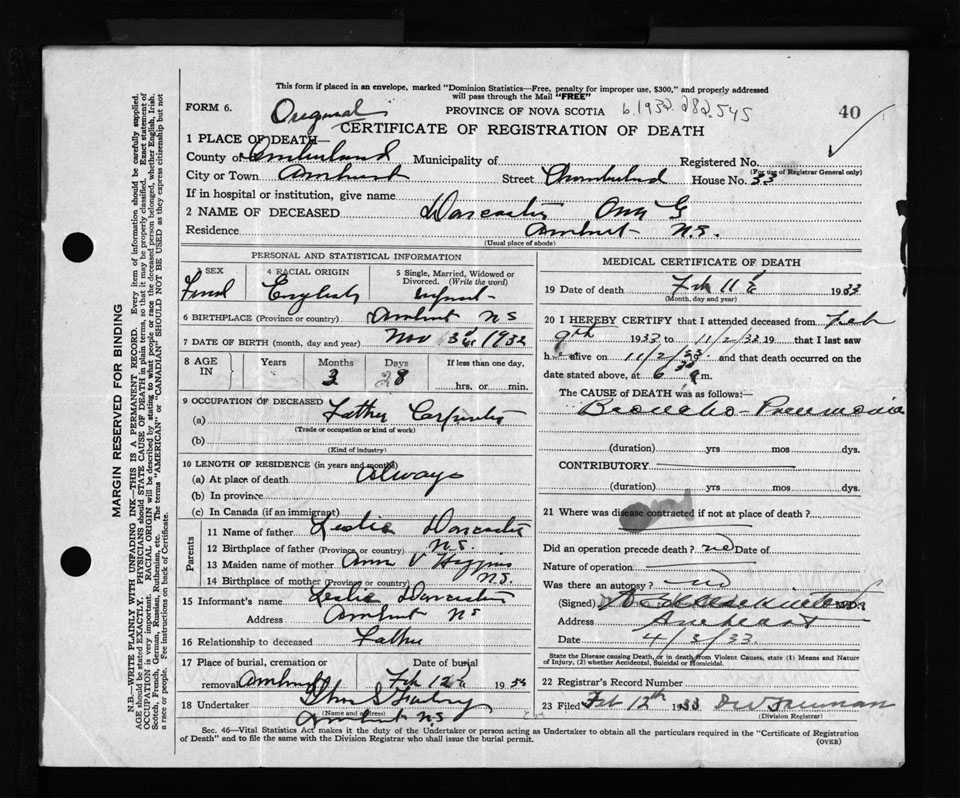 This form if placed in an envelope, marked "Dominion Statistics—Free, penalty for improper use, $300," and properly addressed
will pass through the Mail "FREE"
FORM 6. Original PROVINCE OF NOVA SCOTIA 6.1932.282.545 40
CERTIFICATE OF REGISTRATION OF DEATH
1 PLACE OF DEATH—
County of Cumberland Municipality of Registered No.
(For use of Registrar General only)
City or Town Amherst Street House No. 33
If in hospital or institution, give name
2 NAME OF DECEASED Doncaster Ann G
Residence Amherst N.S.
(Usual place of abode)
PERSONAL AND STATISTICAL INFORMATION
3 SEX 4 RACIAL ORIGIN 5 Single, Married, Widowed or Divorced. (Write the word)
English
6 BIRTHPLACE (Province or country) Amherst NS
7 DATE OF BIRTH (month, day and year) Nov 1932
8 AGE IN Years Months Days If less than one day,
3 28 hrs. or min.
9 OCCUPATION OF DECEASED
(a) Father Carpenter
(Trade or occupation or kind of work)
(b)
(Kind of industry)
10 LENGTH OF RESIDENCE (in years and months)
(a) At place of death Always
(b) In province
(c) In Canada (if an immigrant)
Parents
11 Name of father Leslie Doncaster
12 Birthplace of father (Province or country) N.S.
13 Maiden name of mother Ann V Higgins
14 Birthplace of mother (Province or country) N.S.
15 Informant's name Leslie Doncaster
Address Amherst NS
16 Relationship to deceased Father
17 Place of burial, cremation or Date of burial
removal Amherst Feb 12 19
18 Undertaker
(Name and address)
Amherst NS
MEDICAL CERTIFICATE OF DEATH
19 Date of death Feb 11 1933
(Month, day and year)
20 I HEREBY CERTIFY that I attended deceased from Feb
9th 1933 to 11/2/33 19 that I last saw
h alive on 11/2/33 19 and that death occurred on the
date stated above, at 6 m.
The CAUSE OF DEATH was as follows:—
Broncho-Pneumonia
(duration) yrs mos dys.
CONTRIBUTORY
(duration) yrs mos dys.
21 Where was disease contracted if not at place of death?
Did an operation precede death? no Date of
Nature of operation
Was there an autopsy? no
(Signed) M.D.
Address Amherst
Date 4/3/33
State the Disease causing Death, or in death from Violent Causes, state (1) Means and Nature
of Injury, (2) whether Accidental, Suicidal or Homicidal.
22 Registrar's Record Number
23 Filed Feb 12th 1933
(Division Registrar)
Sec. 46—Vital Statistics Act makes it the duty of the Undertaker or person acting as Undertaker to obtain all the particulars required in the "Certificate of Registration
of Death" and to file the same with the Division Registrar who shall issue the burial permit. (OVER)
MARGIN RESERVED FOR BINDING
N.B.—WRITE PLAINLY WITH UNFADING INK—THIS IS A PERMANENT RECORD. Every item of information should be carefully supplied.
AGE should be stated EXACTLY. PHYSICIANS should STATE CAUSE OF DEATH in plain terms, so that it may be properly classified. Exact statement of
OCCUPATION is very important. RACIAL ORIGIN will be described by stating to what people or race the deceased person belonged, whether English, Irish,
Scotch, French, German, Russian, Ruthenian, etc. The terms "AMERICAN" or "CANADIAN" SHOULD NOT BE USED as they express citizenship but not
a race or people. See instructions on back of Certificate.